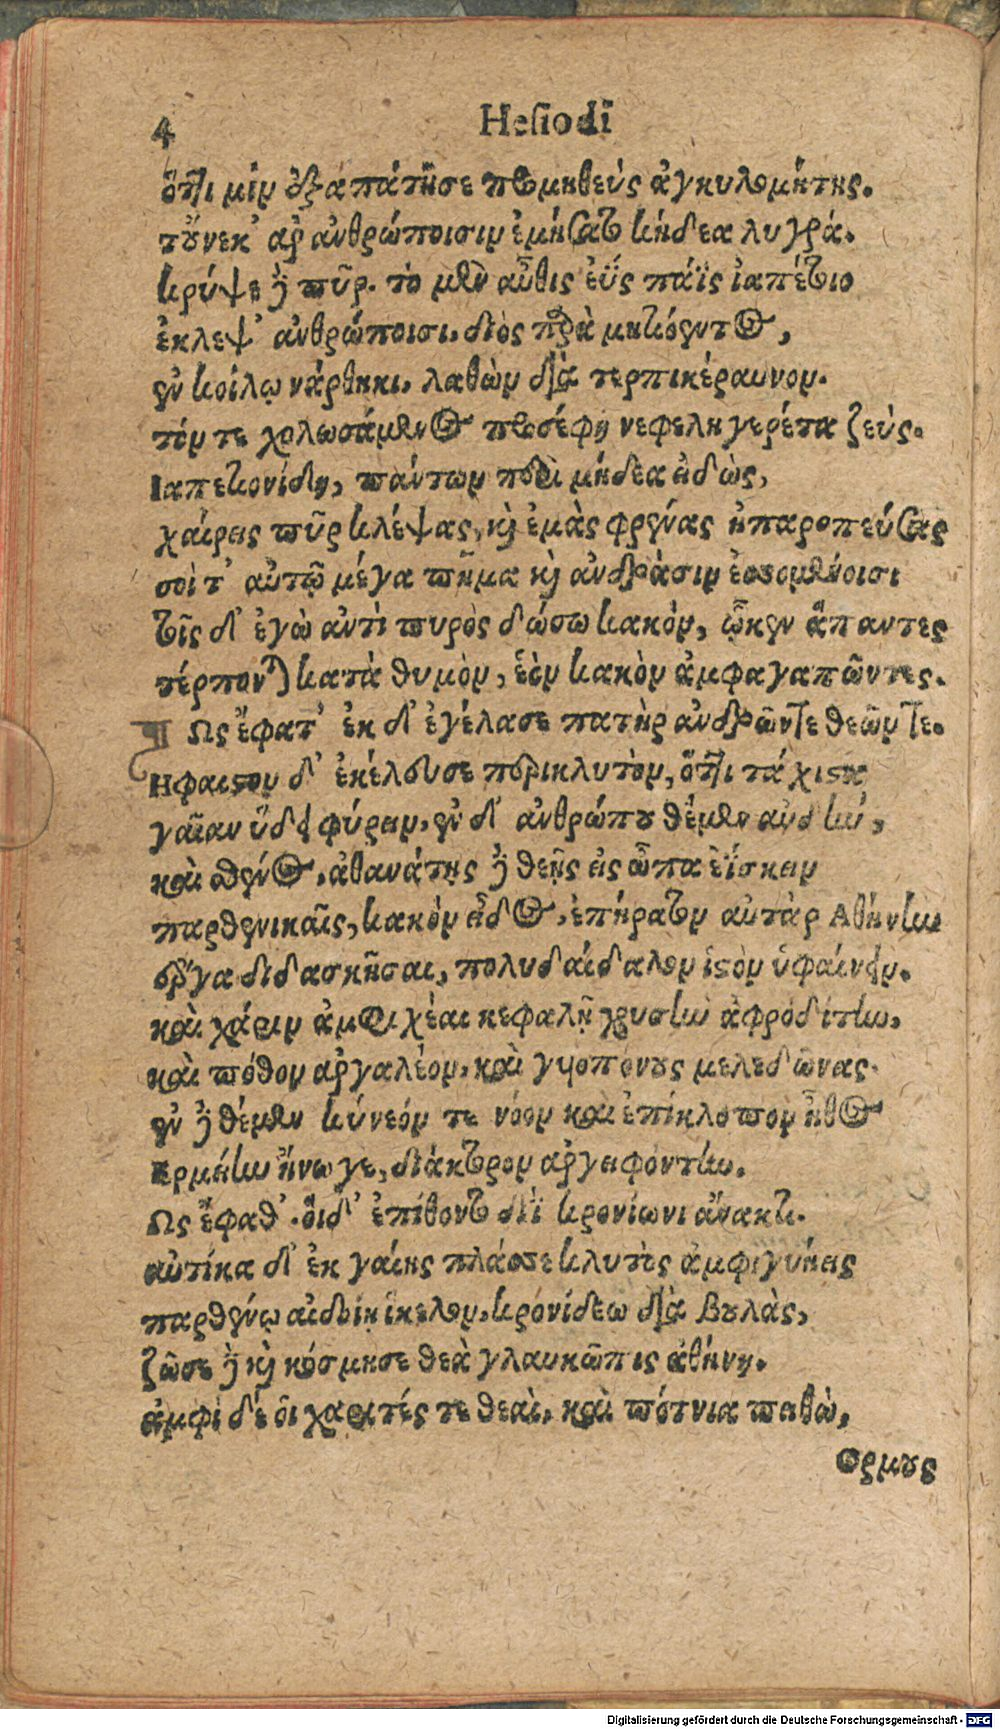 4 Hesiodi
ὅττι μιν ἐξαπάτησε προμηθεὺς ἀγκυλομήτης.
τοὔνεκ' ἄρ ἀνθρώποισιν ἐμήσατο κήδεα λυγρά.
κρύψε δὲ πῦρ. τὸ μὲν αὖθις ἐῢς πάϊς ἰαπέτοιο
ἔκλεψ' ἀνθρώποισι, διὸς παρὰ μητιόεντος,
ἐν κοίλῳ νάρθηκι, λαθὼν δία τερπικέραυνον.
τόν τε χολωσάμενος προσέφη νεφεληγερέτα ζεύς.
Ιαπετιονίδη, πάντων πέρι μήδεα εἰδὼς,
χαίρεις πῦρ κλέψας, καὶ ἐμὰς φρένας ἠπεροπεύσας
σοὶ τ' αὐτῷ μέγα πῆμα καὶ ἀνδράσιν ἐσσομένοισι
τοῖς δ' ἐγὼ ἀντὶ πυρὸς δώσω κακὸν, ᾧ κεν ἅπαντες
τέρπονται κατὰ θυμὸν, ἑὸν κακὸν ἀμφαγαπῶντες.
¶ Ως ἔφατ' ἐκ δ' ἐγέλασε πατὴρ ἀνδρῶν τε θεῶν τε.
Ηφαιστον δ' ἐκέλευσε περικλυτὸν, ὅττι τάχιστα
γαῖαν ὕδει φύρειν, ἐν δ' ἀνθρώπου θέμεν αὐδὴν,
καὶ σθένος, ἀθανάτῃς δὲ θεῇς εἰς ὦπα ἐΐσκειν
παρθενικαῖς, καλὸν εἶδος, ἐπήρατον αὐτὰρ Αθήνην
ἔργα διδασκῆσαι, πολυδαίδαλον ἱστὸν ὑφαίνειν.
καὶ χάριν ἀμφιχέαι κεφαλῇ χρυσὴν ἀφροδίτην,
καὶ πόθον ἀργαλέον, καὶ γυιοπόνους μελεδῶνας.
ἐν δὲ θέμεν κύνεόν τε νόον καὶ ἐπίκλοπον ἦθος
Ερμείην ἤνωγε, διάκτορον ἀργειφόντην.
Ως ἔφαθ'. οἱ δ' ἐπίθοντο διῒ κρονίωνι ἄνακτι.
αὐτίκα δ' ἐκ γαίης πλάσσε κλυτὸς ἀμφιγυήεις
παρθένῳ αἰδοίῃ ἴκελον, κρονίδεω διὰ βουλὰς,
ζῶσε δὲ καὶ κόσμησε θεὰ γλαυκῶπις ἀθήνη.
ἀμφὶ δέ οἱ χάριτές τε θεαὶ, καὶ πότνια πειθὼ,
ορμους
Digitalisierung gefördert durch die Deutsche Forschungsgemeinschaft - DFG